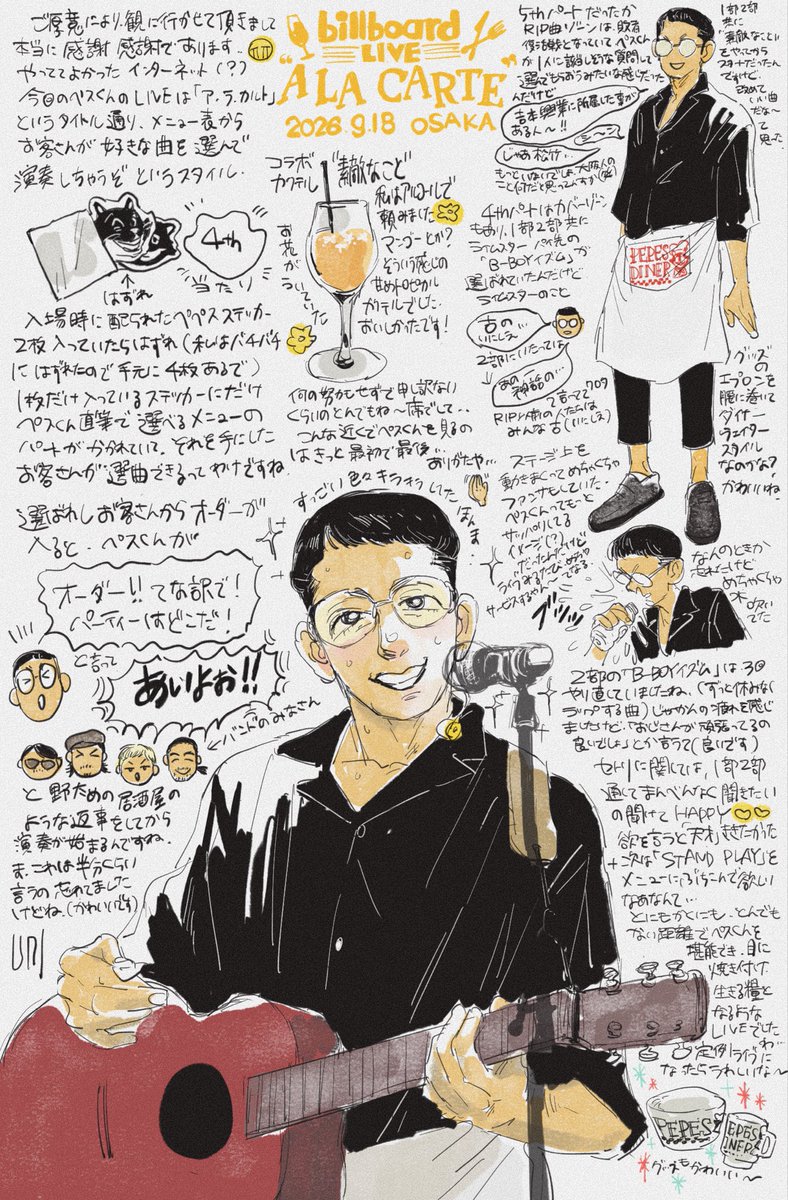 ご厚意により観に行かせて頂きまして
本当に感謝感謝であります。
やっててよかったインターネット(?)
今回のペスくんのLIVEは「ア・ラ・カルト」
というタイトル通り、メニュー表から
お客さんが好きな曲を選んで
演奏しちゃうぞというスタイル.
billboard
LIVE
"A LA CARTE"
2026.9.18 OSAKA
4th
はずれ
当たり
入場時に配られたペペスステッカー
2枚入っていたらはずれ(私はバチバチ
にはずれたので手元に4枚あるで)
1枚だけ入っているステッカーにだけ
ペスくん直筆で選べるメニューの
パートがかかれていて、それを手にした
お客さんが選曲できるってわけですね.
選ばれしお客さんからオーダーが
入ると、ペスくんが
オーダー!!てな訳で!
パーティーはどこだ!
と言って
あいよお!!
バンドのみなさん
と野ための居酒屋の
ような返事をしてから
演奏が始まるんですね.
ま、これは半分くらい
言うの忘れてました
けどね.(かわいいです)
コラボ
カクテル
"素敵なこと"
お花がういていた
私はアルコールで
頼みました
マンゴーとか?
そういう感じの
甘めトロピカル
カクテルでした.
おいしかったです!
何の努力もせずで申し訳ない
くらいのとんでもね〜席でして…
こんな近くでペスくんを見るの
はきっと最初で最後…
ありがたや…
すっごい色々キラキラしていた
ほんま.
5thパートだったか
RIP曲ゾーンは、敗者
復活戦となっていてペスくん
が1人に該当しそうな質問して
選んでもらおうみたいな感じだった
んだけど
吉本興業に所属した事が
あるん〜!!
シーン
じゃあ松竹…
もっといないでしょ、大阪人の
こと何だと思ってんすか(笑)
1部2部
共に
"素敵なこと"
をやってから
スタートだったん
ですけど、
改めて
いい曲
だな〜
って
思った
4thパートはカバーゾーン
もあり、1部2部共に
ライムスターパイ先の
「B-BOYイズム」が
選ばれていたんだけど
ライムスターのこと
古の
いにしえ
2部にいたっては
あの神話の…
って言ってワロタ
RIP人術の人たちは
みんな古(いにしえ)
PEPES
DINER
グッズの
エプロンを
腰に巻いて
ダイナー
ウェイター
スタイル
なのかな?
かわいいね.
ステージ上を
動きまくってめちゃくちゃ
ファンサもしていた.
ペスくんってもっと
サッパリしてる
イメージ(?)
だったんだけど
サービスするやん〜てなる
ブッッ
なんのときか
忘れたけど
めちゃくちゃ
水吹いてた
2部の「B-BOYイズム」は3回
やり直していましたね、(ずっと休みなく
ラップする曲)じゃかんの疲れを感じ
ましたけど、「おじさんが頑張ってるの
良いでしょ」とか言って(良いです)
セトリに関しては、1部2部
通してまんべんなく聞きたい
の聞けてHAPPY
欲を言うと"天才"ききたかった
+次は「STAND PLAY」を
メニューにぶちこんで欲しい
なぁなんて…
とにもかくにも、とんでも
ない距離でペスくんを
堪能でき、目に
焼き付け
生きる糧と
なるような
LIVEでした
わ
定例ライブに
なったらうれしいな〜
PEPES
PEPES
DINER
グッズもかわいい〜